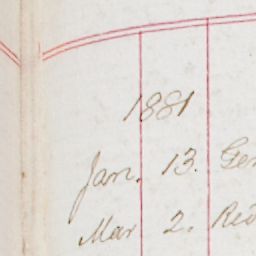 1881
Jan. 13. Gen
Mar 2. Red